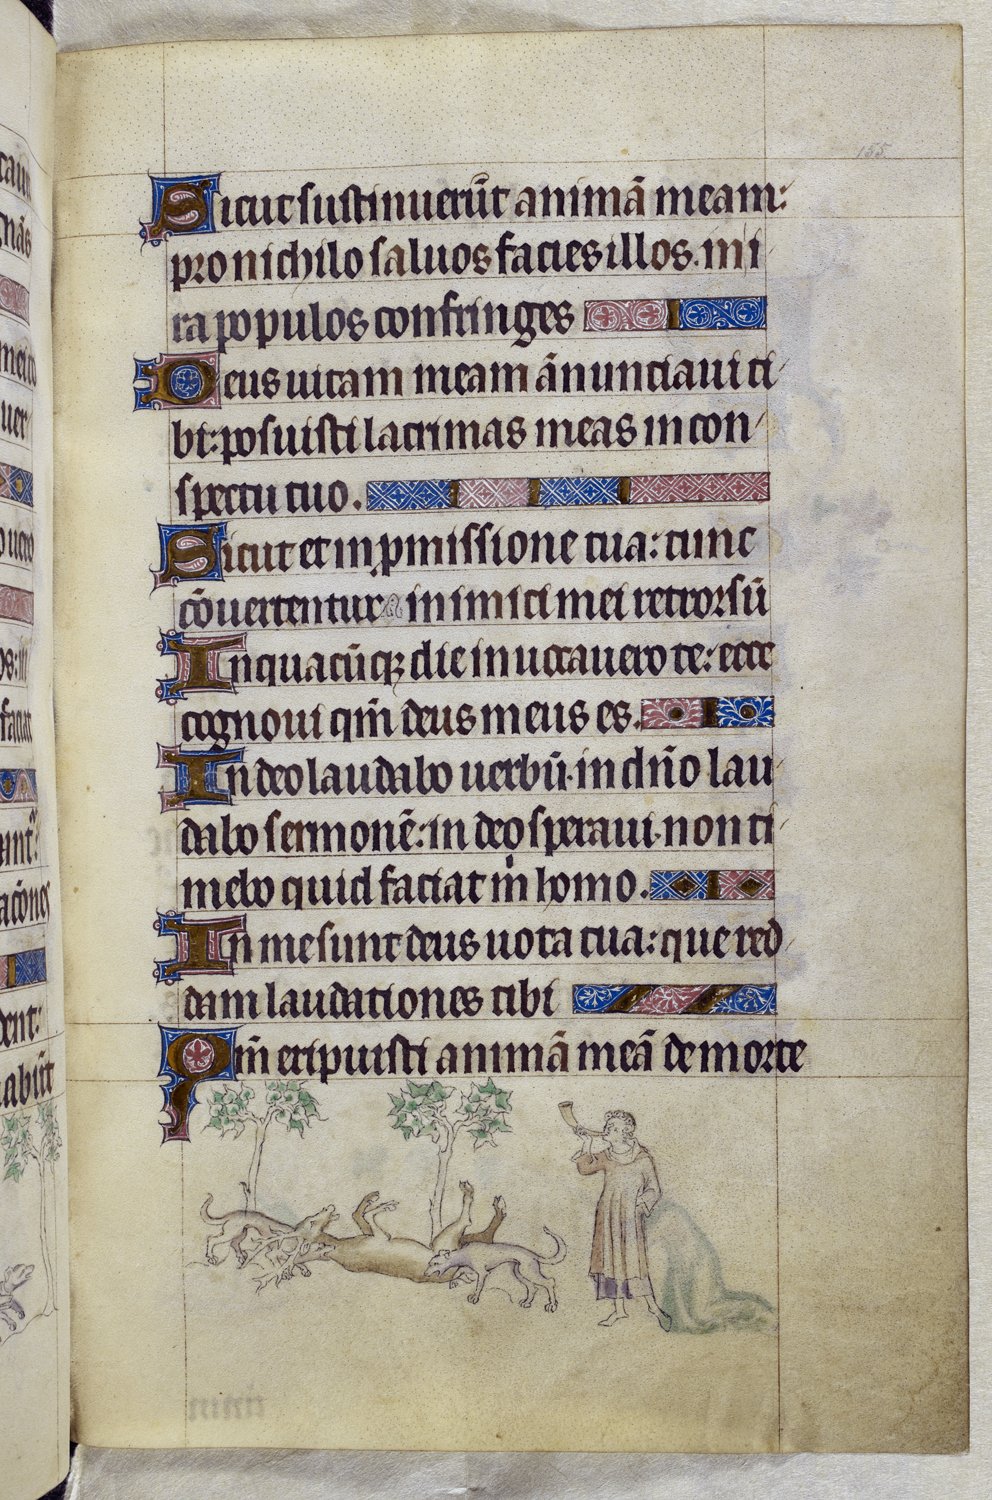 155
Sicut sustinuerūt animā meam:
pro nichilo saluos facies illos. in i
ra populos confringes
Deus uitam meam ānunciaui ti
bi: posuisti lacrimas meas in con
spectu tuo.
Sicut et in ꝓmissione tua: tunc
cōuertentur inimici mei retrorsū
In quacūqꝫ die inuocauero te: ecce
cognoui qm̄ deus meus es.
In deo laudabo uerbū. in dn̄o lau
dabo sermonē: in deo speraui. non ti
mebo quid faciat m̄ homo.
In me sunt deus uota tua: que red
dam laudationes tibi
Qm̄ eripuisti animā meā de morte